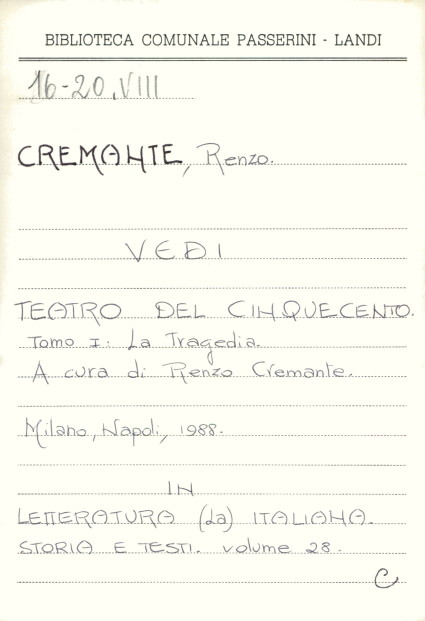 BIBLIOTECA COMUNALE PASSERINI - LANDI
16-20.VIII
CREMANTE, Renzo.
VEDI
TEATRO DEL CINQUECENTO.
Tomo I: La Tragedia.
A cura di Renzo Cremante.
Milano, Napoli, 1988.
IN
LETTERATURA (La) ITALIANA.
STORIA E TESTI. volume 28.
C